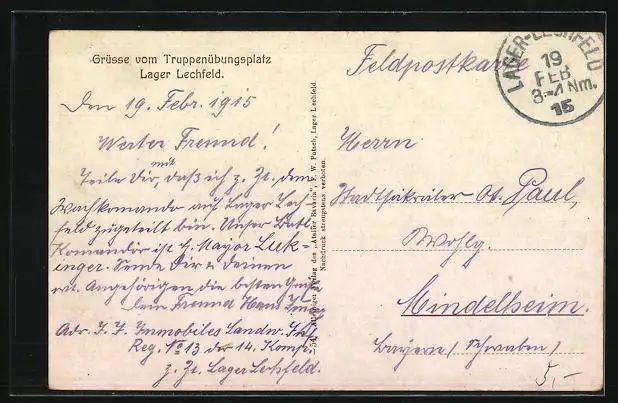 Grüsse vom Truppenübungsplatz
Lager Lechfeld.
Den 19. Febr. 1915
Werter Freund!
Teile Dir, mit daß ich z. Zt. dem
Wachkomando auf Lager Lech-
feld zugeteilt bin. Unser Batl.
Komandör ist H. Major Luk-
inger. Sende Dir u. Deinen
w. Angehörigen die besten Grüße
Dein Freund Hans
Adr. I. I. Immobiles Landw. Inf.
Reg. No 13 der 14. Komp.
z. Zt. Lager Lechfeld.
Verlag des „Atelier Bavaria", F. W. Putsch, Lager Lechfeld.
Nachdruck strengstens verboten.
Feldpostkarte
LAGER-LECHFELD
19
FEB
3-4 Nm.
15
Herrn
Paul,
Wohlg.
Mindelheim.
Bayern / Schwaben /
5,-